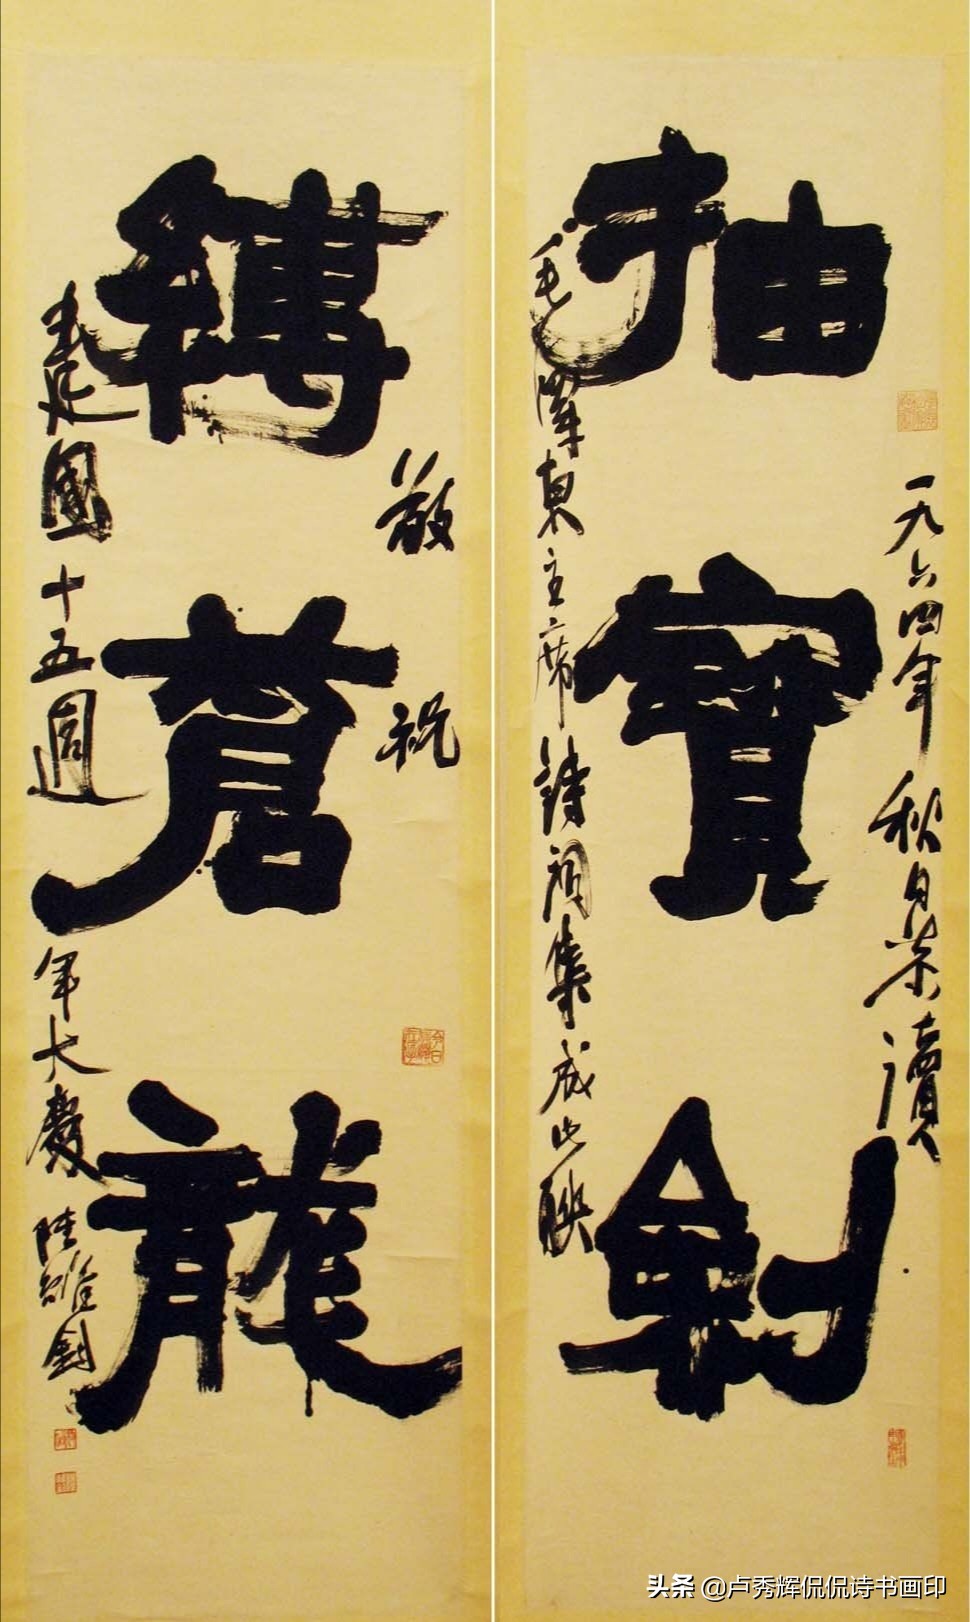 抽寶劍
一九六四年秋日恭讀
毛澤東主席詩詞集成此聯
縛蒼龍
敬祝
建國十五週年大慶陸維釗
头条 @卢秀辉侃侃诗书画印